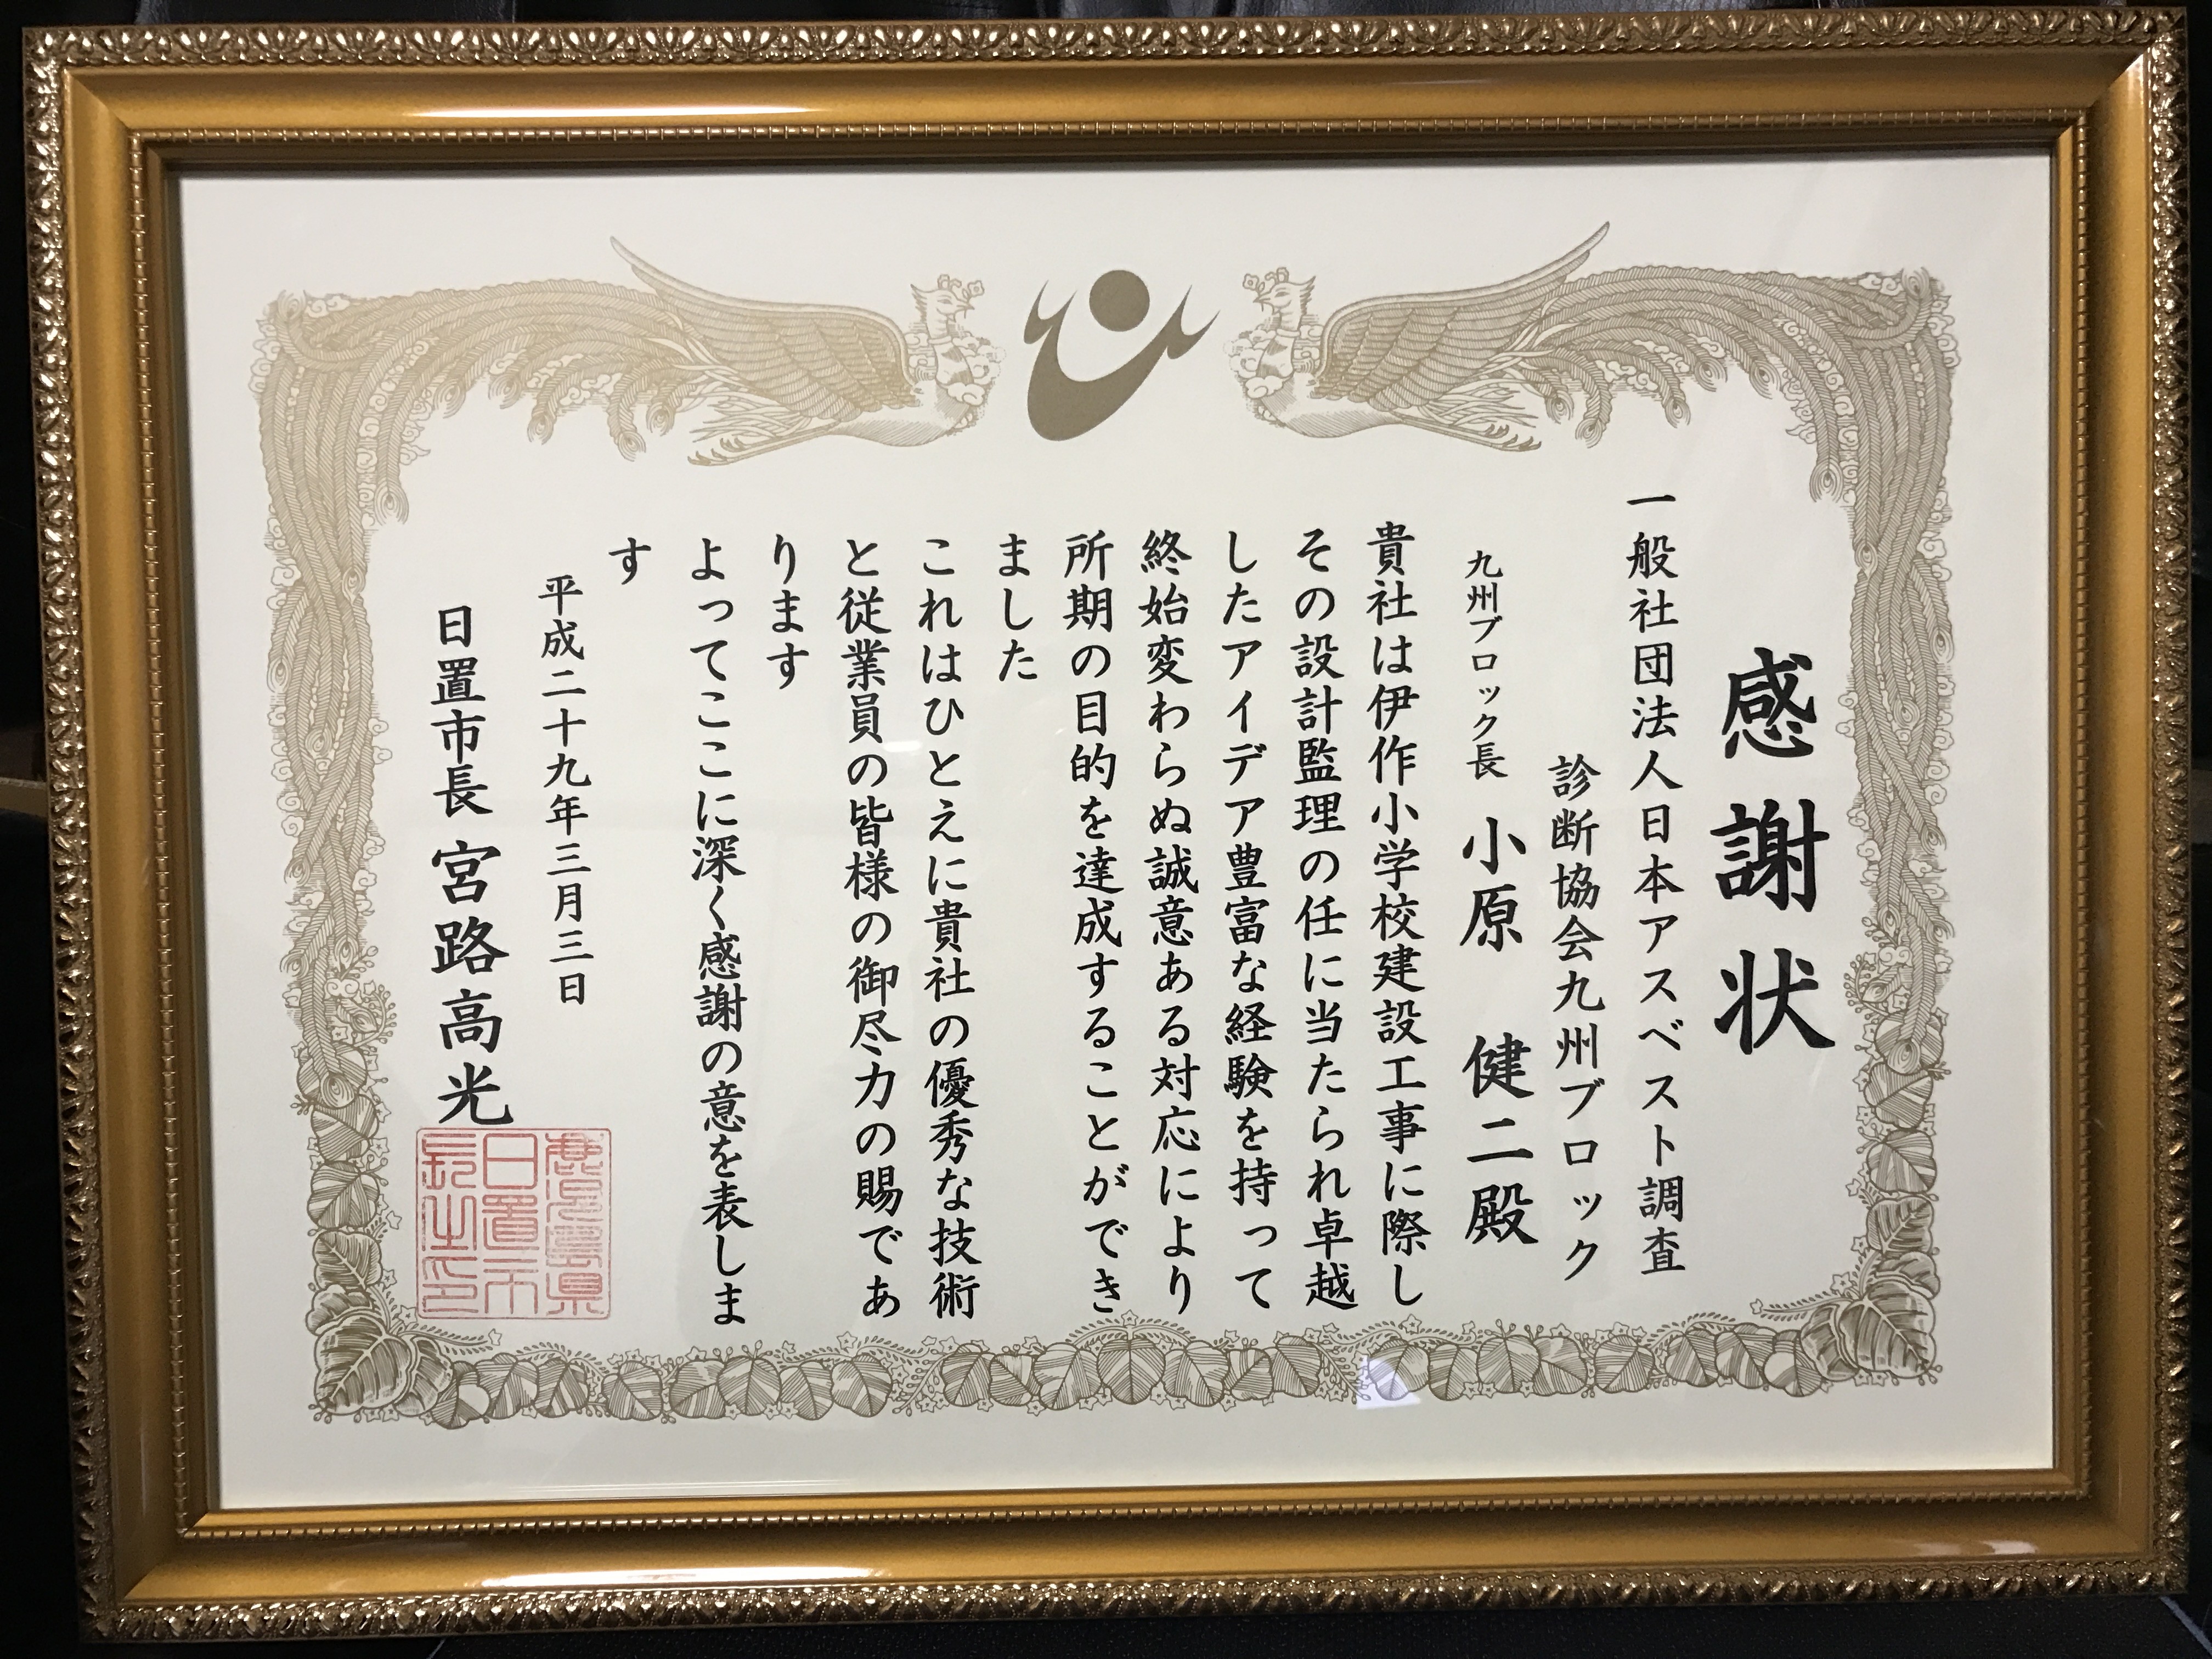 感謝状
一般社団法人日本アスベスト調査
診断協会九州ブロック
九州ブロック長 小原 健二殿
貴社は伊作小学校建設工事に際し
その設計監理の任に当たられ卓越
したアイデア豊富な経験を持って
終始変わらぬ誠意ある対応により
所期の目的を達成することができ
ました
これはひとえに貴社の優秀な技術
と従業員の皆様の御尽力の賜であ
ります
よってここに深く感謝の意を表しま
す
平成二十九年三月三日
日置市長 宮路高光
鹿児島県
日置市
長之印